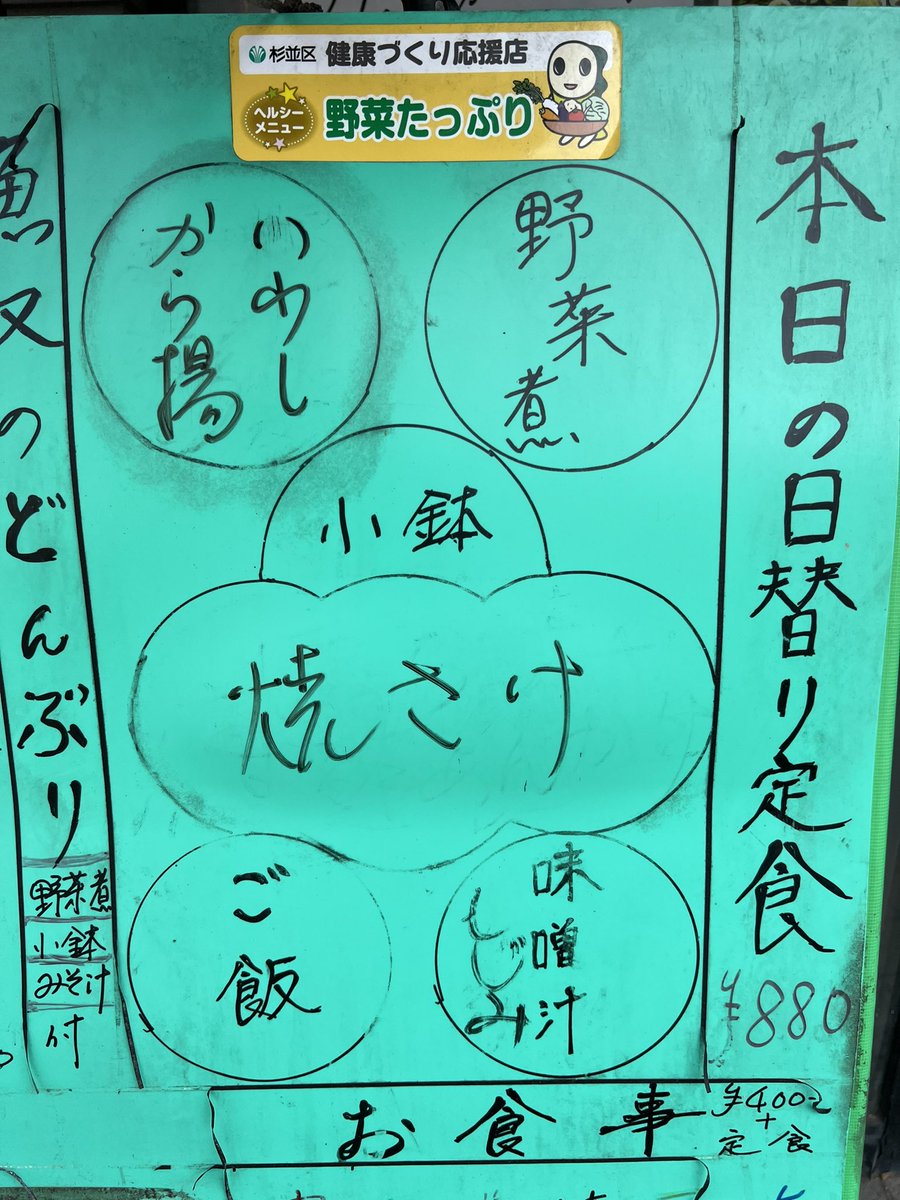 杉並区 健康づくり応援店
ヘルシー
メニュー
野菜たっぷり
本日の日替り定食
¥880
野菜煮
いわし
から揚
小鉢
焼さけ
味噌汁
しじみ
ご飯
のどんぶり
野菜煮
小鉢
みそ汁
付
お食事
¥400
+
定食